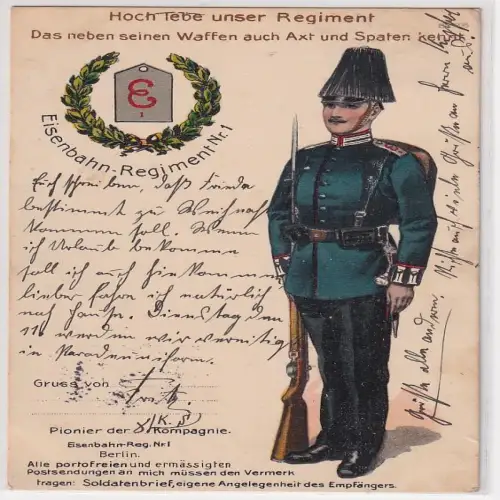 Hoch lebe unser Regiment
Das neben seinen Waffen auch Axt und Spaten kennt
E
1
Eisenbahn-Regiment Nr. 1
Euch schreiben, daß Frieda
bestimmt zu Weihnach
kommen soll. Wenn
ich Urlaub bekomme
soll ich auch hinkommen
lieber fahre ich natürlich
nach Hause. Dienstag den
11. werden wir vereidigt
in Paradeuniform.
Gruss von Fritz
Pionier der 8/K.S Kompagnie.
Eisenbahn-Reg. Nr 1
Berlin.
Alle portofreien und ermässigten
Postsendungen an mich müssen den Vermerk
tragen: Soldatenbrief, eigene Angelegenheit des Empfängers.
Grüße an Herrn
Grüße alle andern